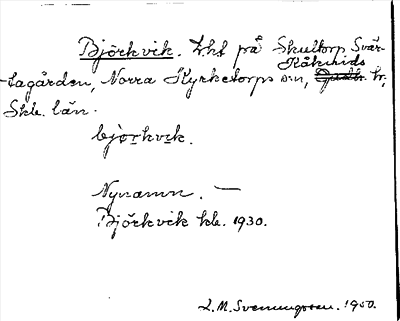 Björkvik. Lht på Skultorp Svär-
Kåkinds
tagården, Norra Kyrketorps sn, Gudh. hr,
Skb. län.
bjo̱rkvi̱k.
Nynamn. —
Björkvik kb. 1930.
L. M. Svenungsson. 1950.